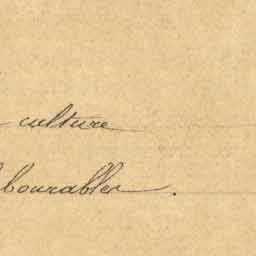 culture
labourables.